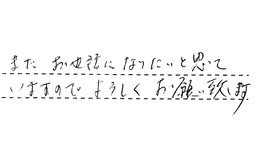 また お世話になりたいと思って
いますので よろしく お願い致します